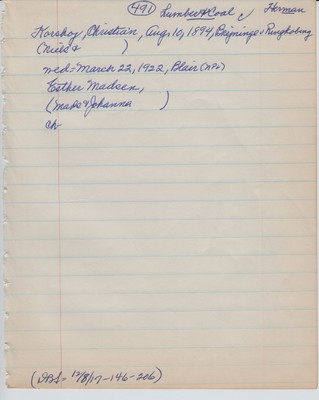 491 Lumber & Coal ✓ Herman
Korshoj, Christian, Aug. 10, 1894, Ringkobing
(Niels & )
wed - March 22, 1922, Blair
Esther Madsen,
(Mads & Johanna )
ch-
(DBS = 12/8/17-146-206)